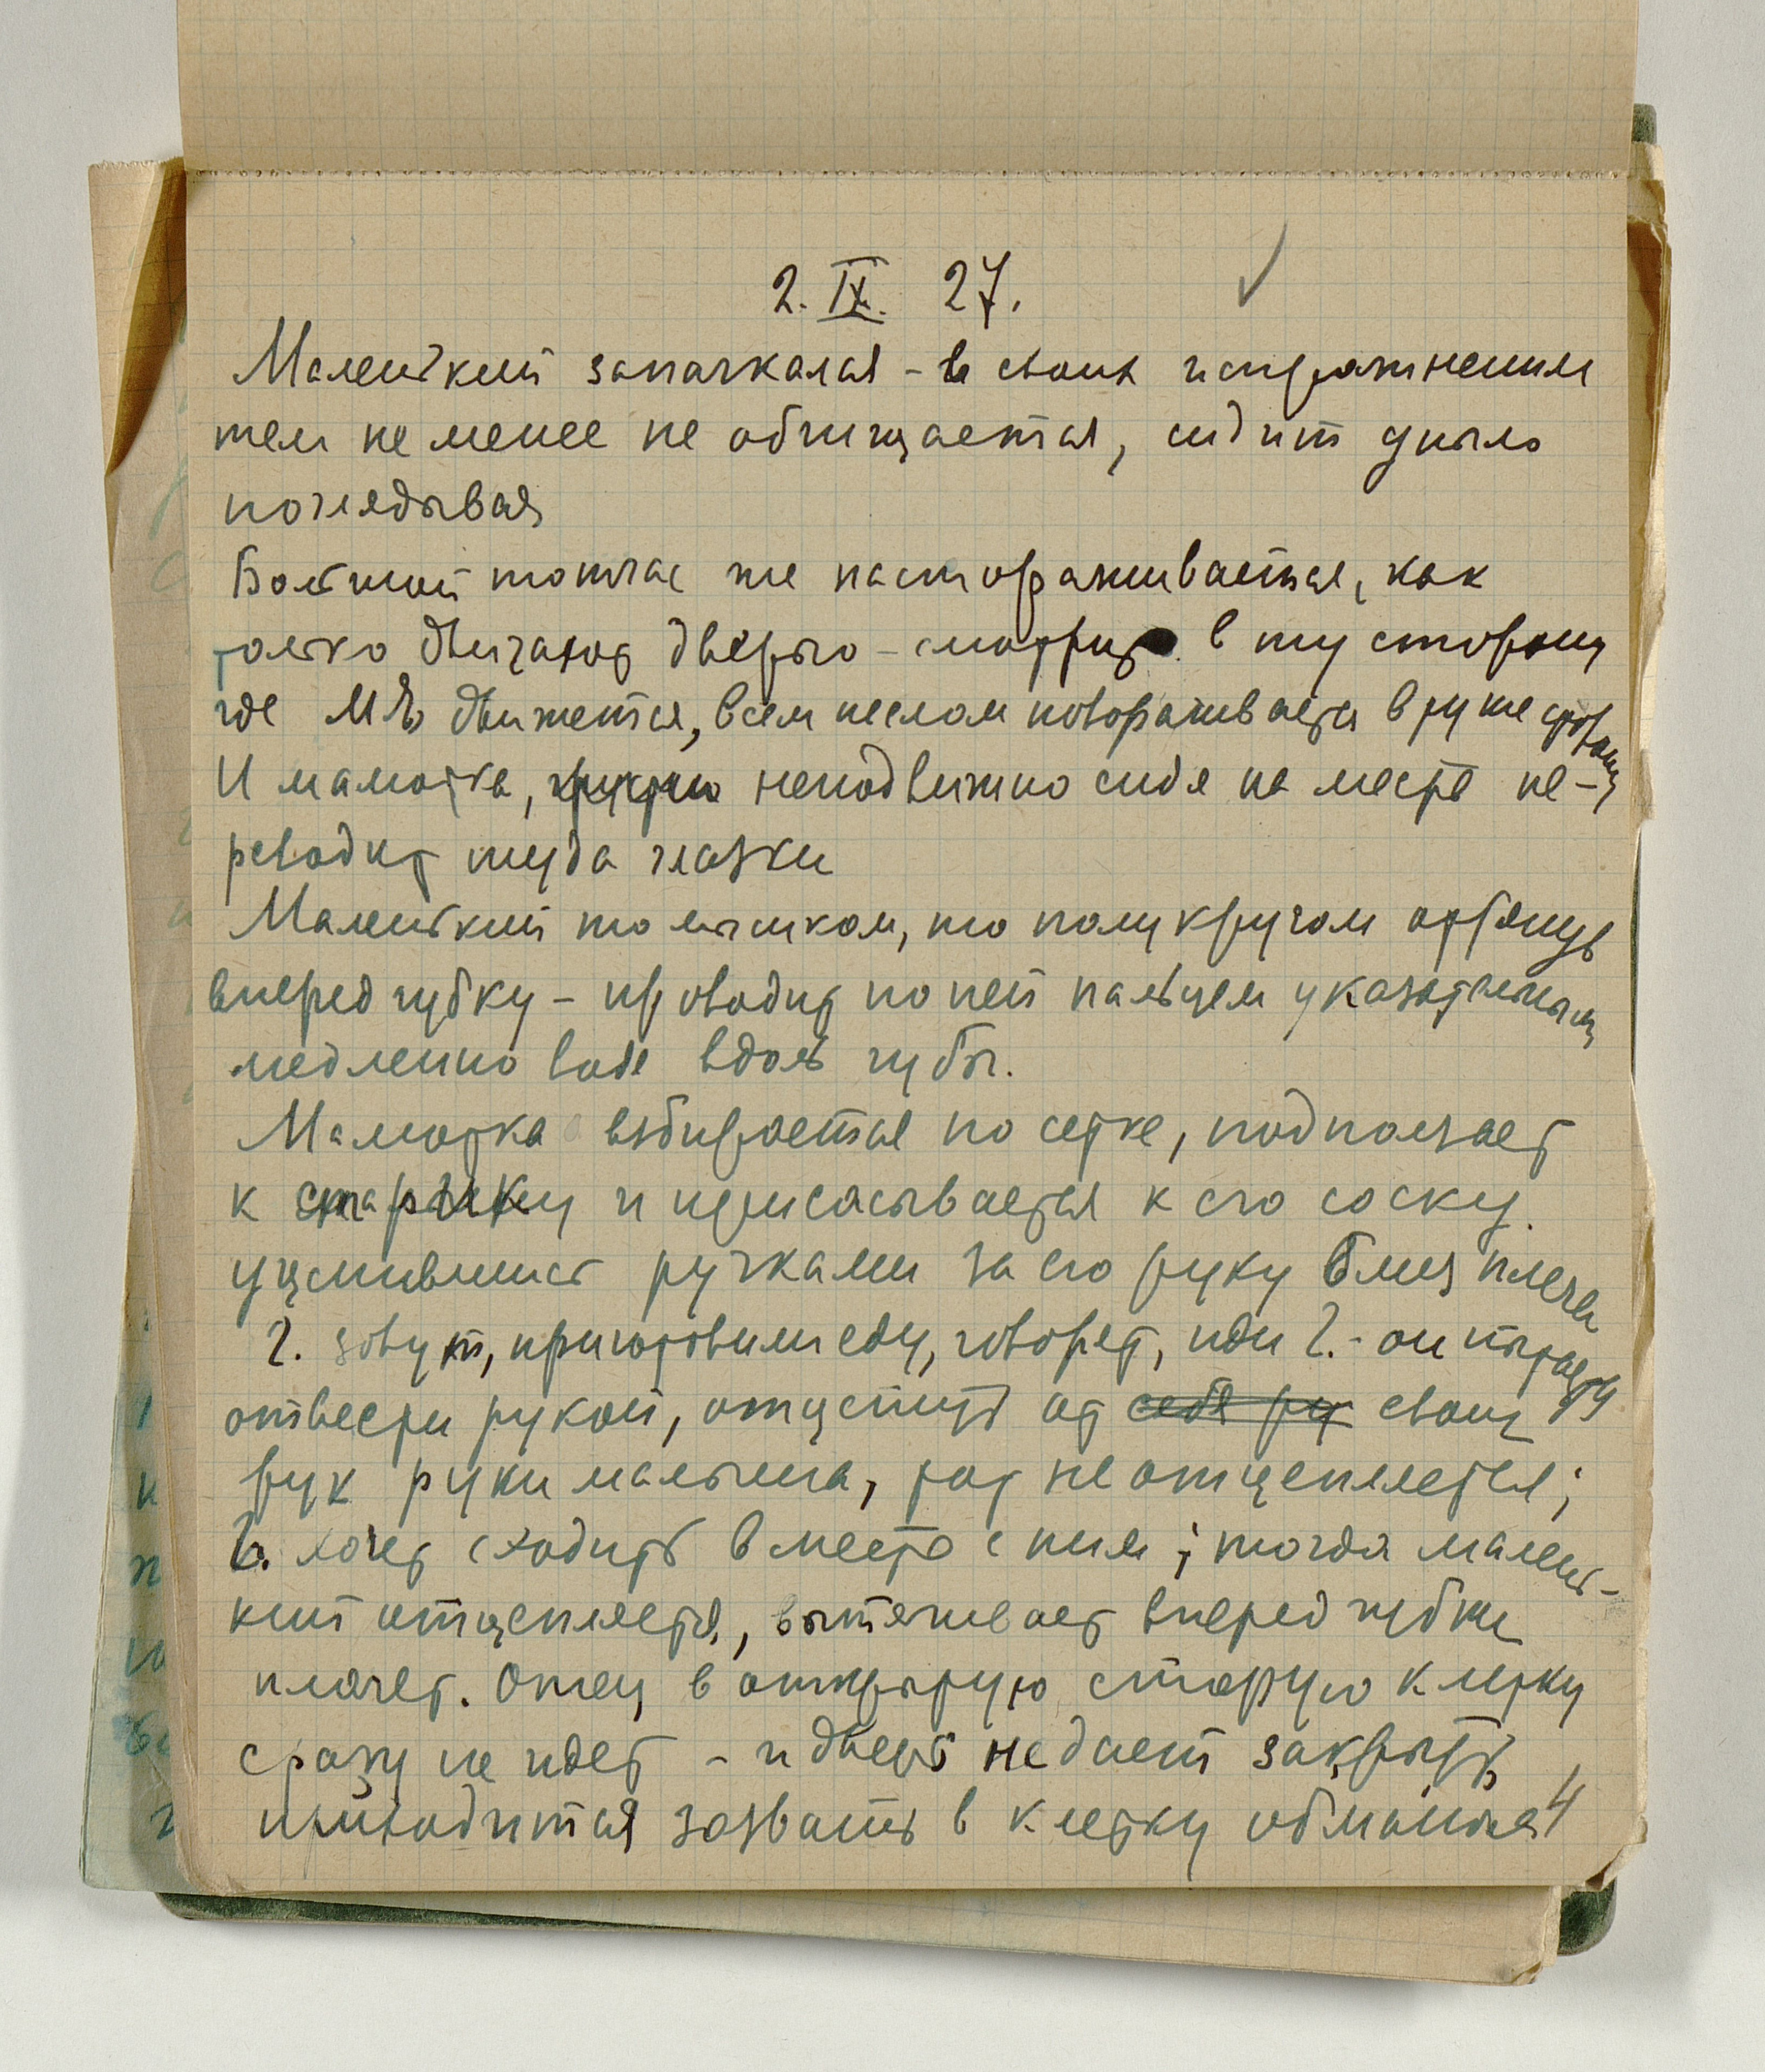 2. IX. 27.
Маленький запачкался - в своих испражнениях
тем не менее не обчищается, сидит уныло
поглядывая
Большой тотчас же настораживается, как
только двигают дверью - смотрит в ту сторону
где М Ѣ движется, всем телом поворачивается в ту же сторону
И малютка, неподвижно сидя на месте пе-
реводит туда глазки
Маленький то язычком, то полукругом оттянув
вперед губку - проводит по ней пальцем указательным
медленно водя вдоль губы.
Малютка взбирается по сетке, подползает
к старику и присасывается к его соску
уцепившись ручками за его руку близ плеча
Г. зовут, приготовили еду, говорят, иди Г. - он пытается
отвести рукой, отцепить от себя ру своих
рук руки малыша, тот не отцепляется;
Г. хочет сходить вместе с ним; тогда малень-
кий отцепляется, вытягивает вперед губки
плачет. Отец в открытую старую клетку
сразу не идет - и дверь не дает закрыть
приходится зазвать в клетку обманом